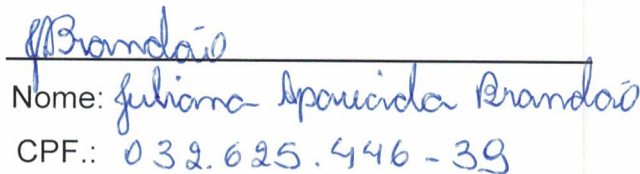 JABrandão
Nome: Juliana Aparecida Brandão
CPF.: 032.625.446-39